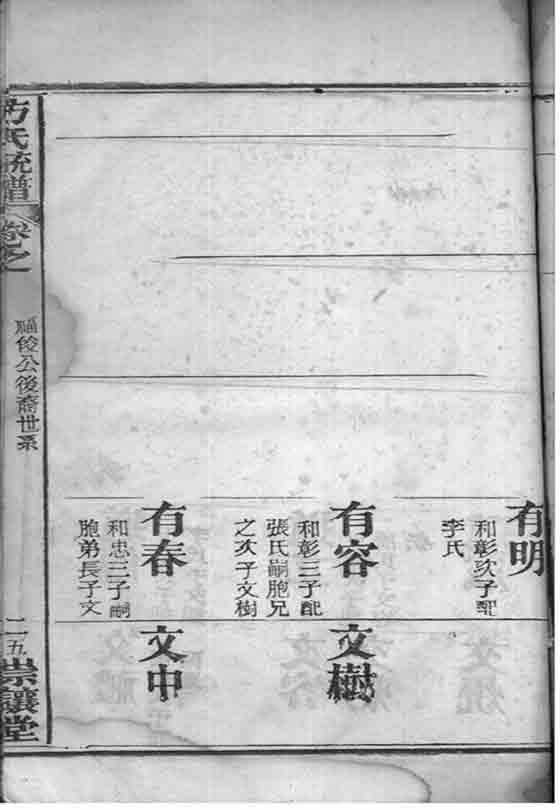 有明
和彰次子配
李氏
有容
和彰三子配
張氏嗣胞兄
之次子文樹
文樹
有春
和忠三子嗣
胞弟長子文
文中
方氏統譜
卷之
福俊公後裔世系
二五
崇讓堂